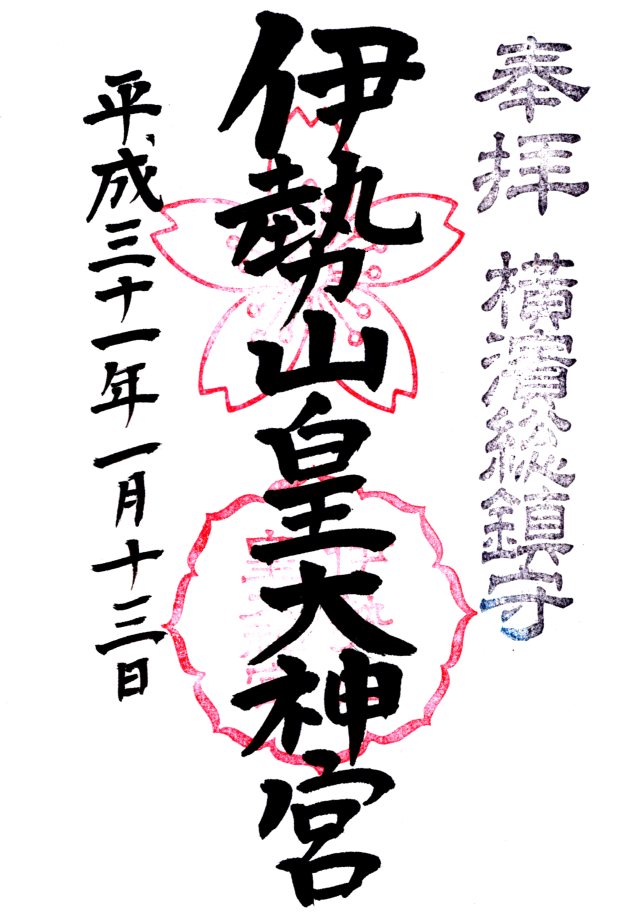 奉拝 横濱総鎮守
伊勢山皇大神宮
平成三十一年一月十三日